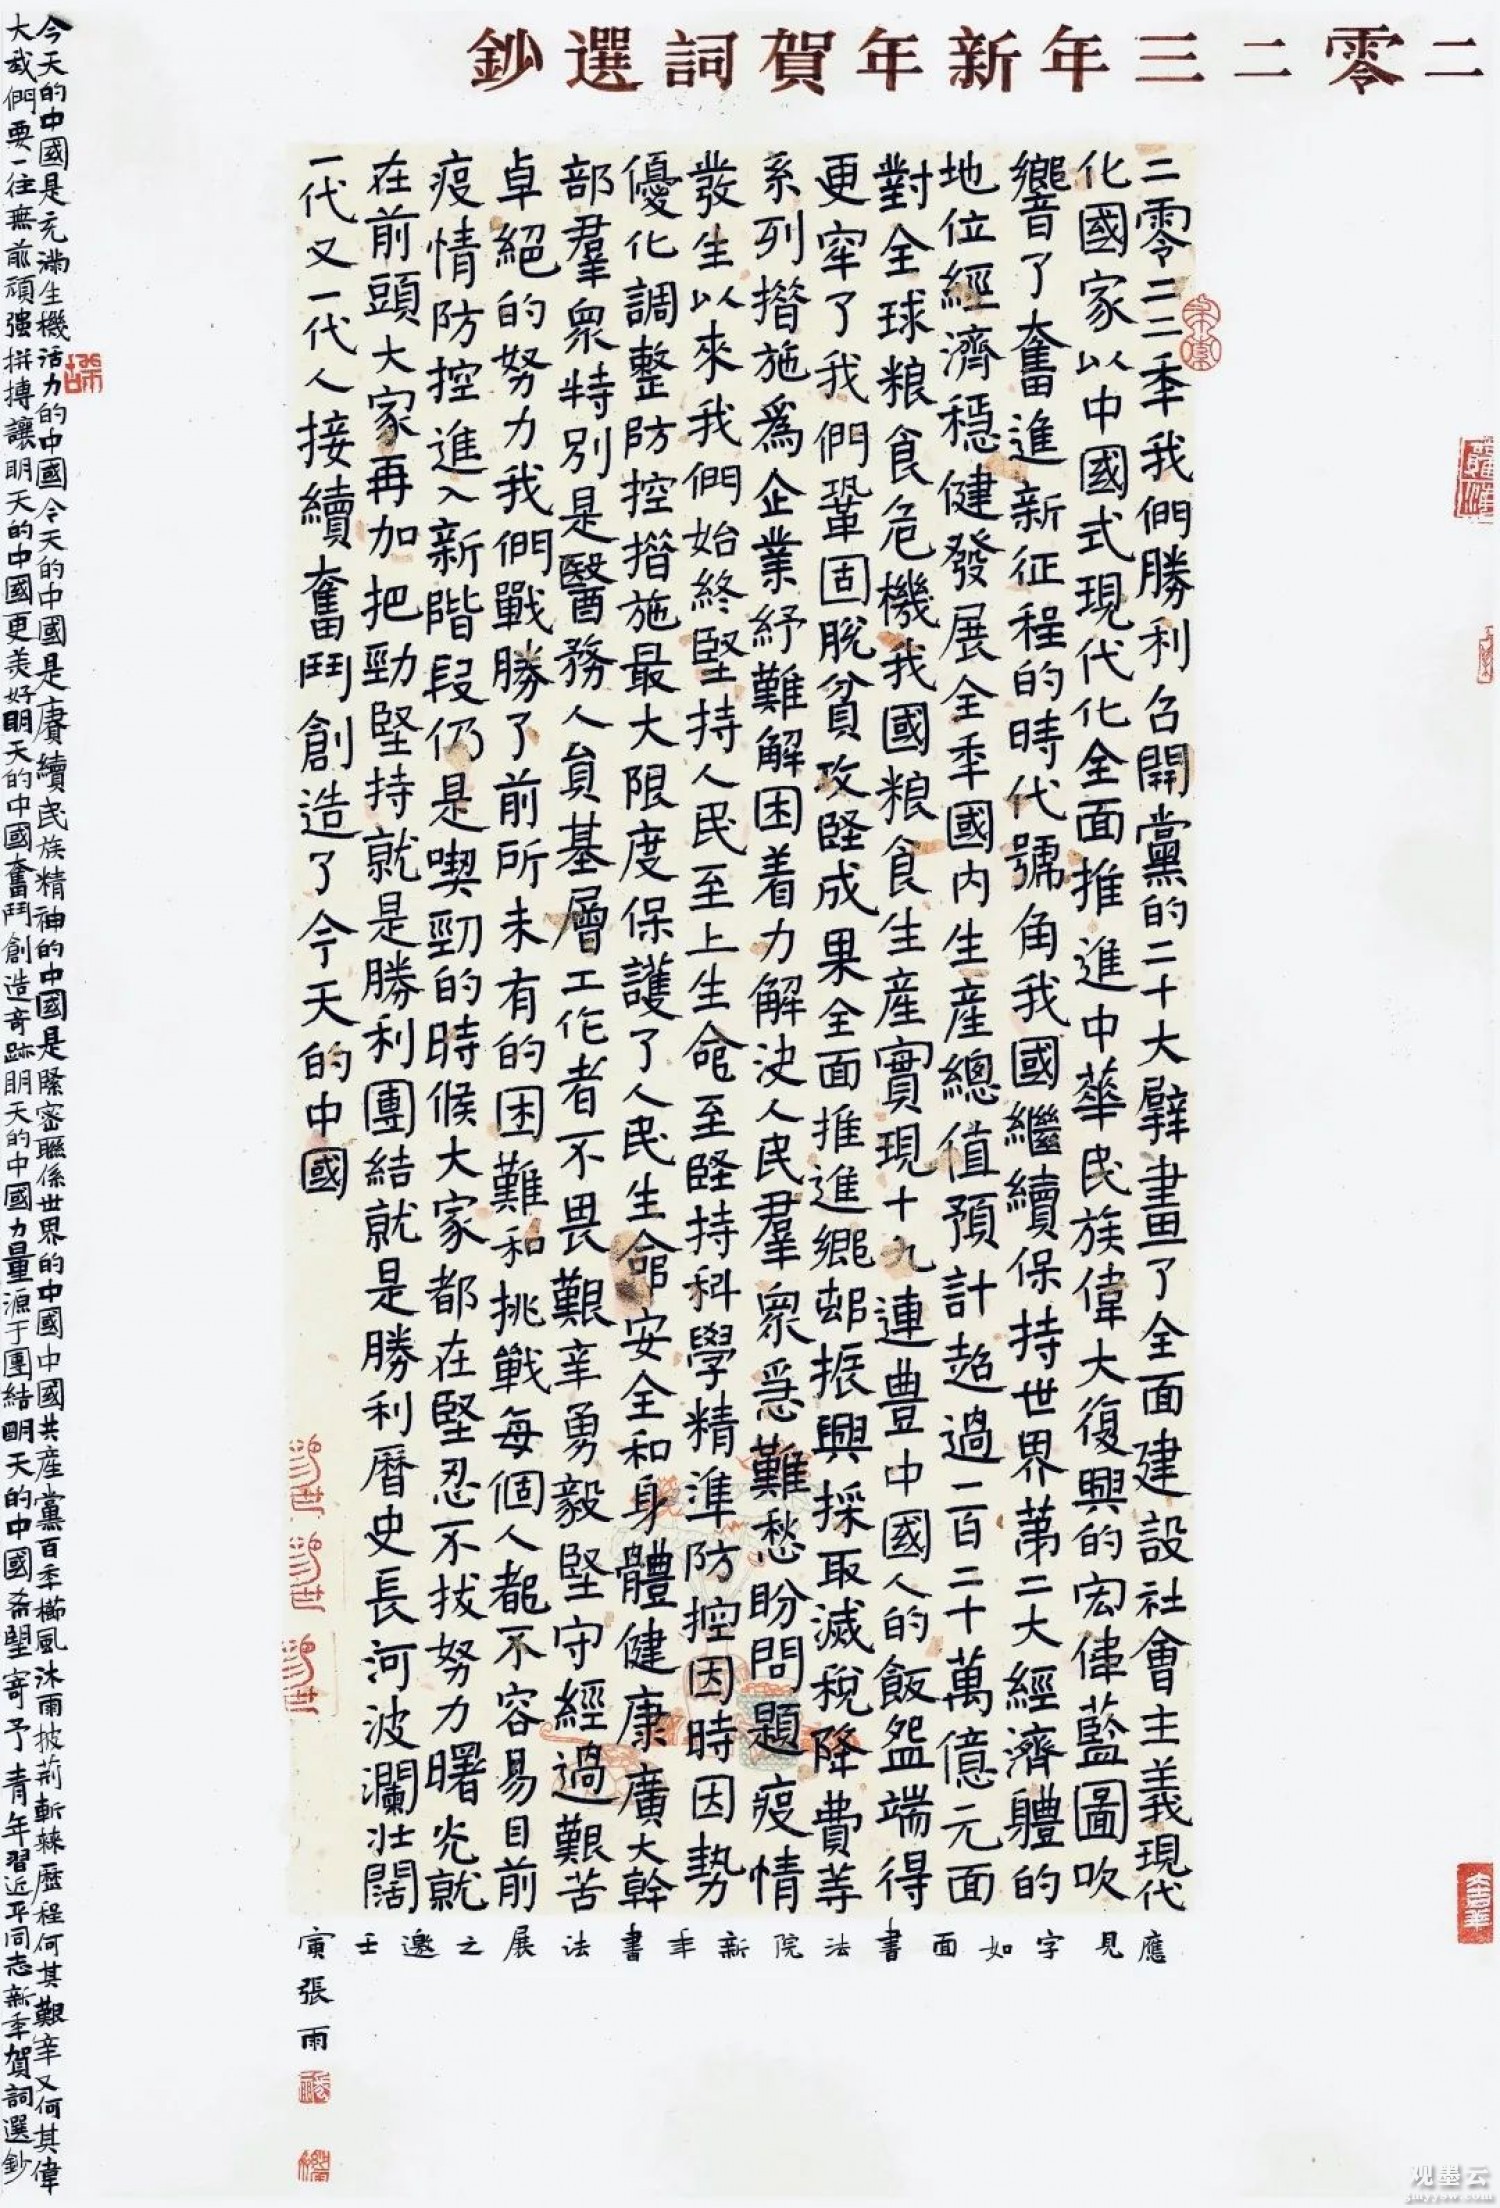 二零二三年新年賀詞選鈔
二零二二年我們勝利召開黨的二十大擘畫了全面建設社會主義現代
化國家以中國式現代化全面推進中華民族偉大復興的宏偉藍圖吹
響了奮進新征程的時代號角我國繼續保持世界第二大經濟體的
地位經濟穩健發展全年國内生産總值預計超過一百二十萬億元面
對全球粮食危機我國粮食生産實現十九連豐中國人的飯盌端得
更牢了我們鞏固脫貧攻堅成果全面推進鄉邨振興採取減稅降費等
系列措施爲企業紓難解困着力解決人民羣衆急難愁盼問題疫情
發生以來我們始終堅持人民至上生命至堅持科學精準防控因時因勢
優化調整防控措施最大限度保護了人民生命安全和身體健康廣大幹
部羣衆特別是醫務人員基層工作者不畏艱辛勇毅堅守經過艱苦
卓絕的努力我們戰勝了前所未有的困難和挑戰每個人都不容易目前
疫情防控進入新階段仍是喫勁的時候大家都在堅忍不拔努力曙光就
在前頭大家再加把勁堅持就是勝利團結就是勝利曆史長河波瀾壯闊
一代又一代人接續奮鬥創造了今天的中國
應見字如面書法院新年書法展之邀壬寅張雨
今天的中國是充滿生機活力的中國今天的中國是賡續民族精神的中國是緊密聯係世界的中國中國共産黨百年櫛風沐雨披荊斬棘歷程何其艱辛又何其偉
大我們要一往無前頑强拼搏讓明天的中國更美好明天的中國奮鬥創造奇跡明天的中國力量源于團結明天的中國希望寄予青年習近平同志新年賀詞選鈔
观墨云